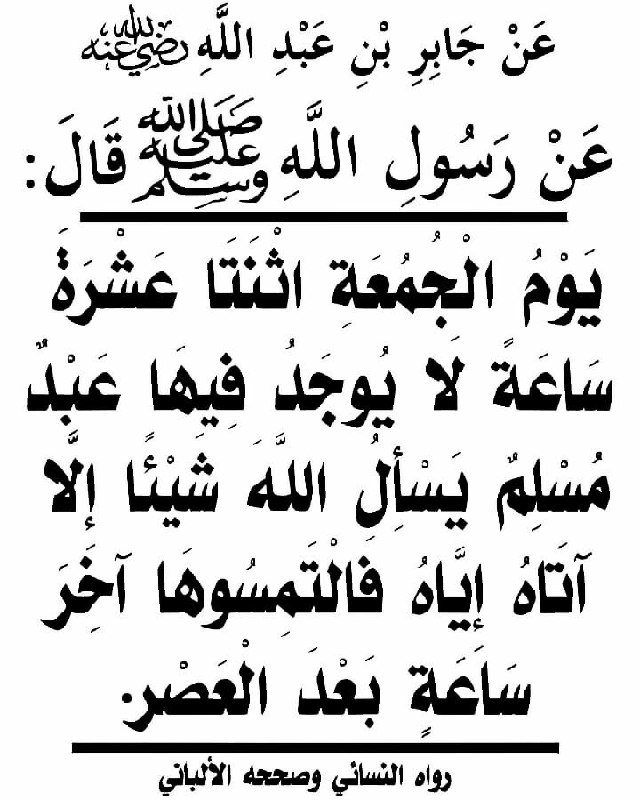 عَنْ جَابِرِ بْنِ عَبْدِ اللَّهِ رضي الله عنه
عَنْ رَسُولِ اللَّهِ صلى الله عليه وسلم قَالَ:
يَوْمُ الْجُمُعَةِ اثْنَتَا عَشْرَةَ
سَاعَةً لَا يُوجَدُ فِيهَا عَبْدٌ
مُسْلِمٌ يَسْأَلُ اللَّهَ شَيْئًا إِلَّا
آتَاهُ إِيَّاهُ فَالْتَمِسُوهَا آخِرَ
سَاعَةٍ بَعْدَ الْعَصْرِ.
رواه النسائي وصححه الألباني